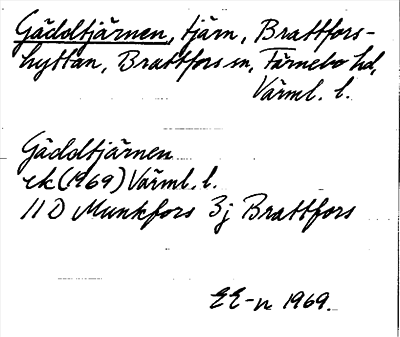 Gäddtjärnen, tjärn, Brattfors-
hyttan, Brattfors sn, Färnebo hd,
Värml. l.
Gäddtjärnen
ek (1969) Värml. l.
11 D Munkfors 3j Brattfors
EE-n 1969.